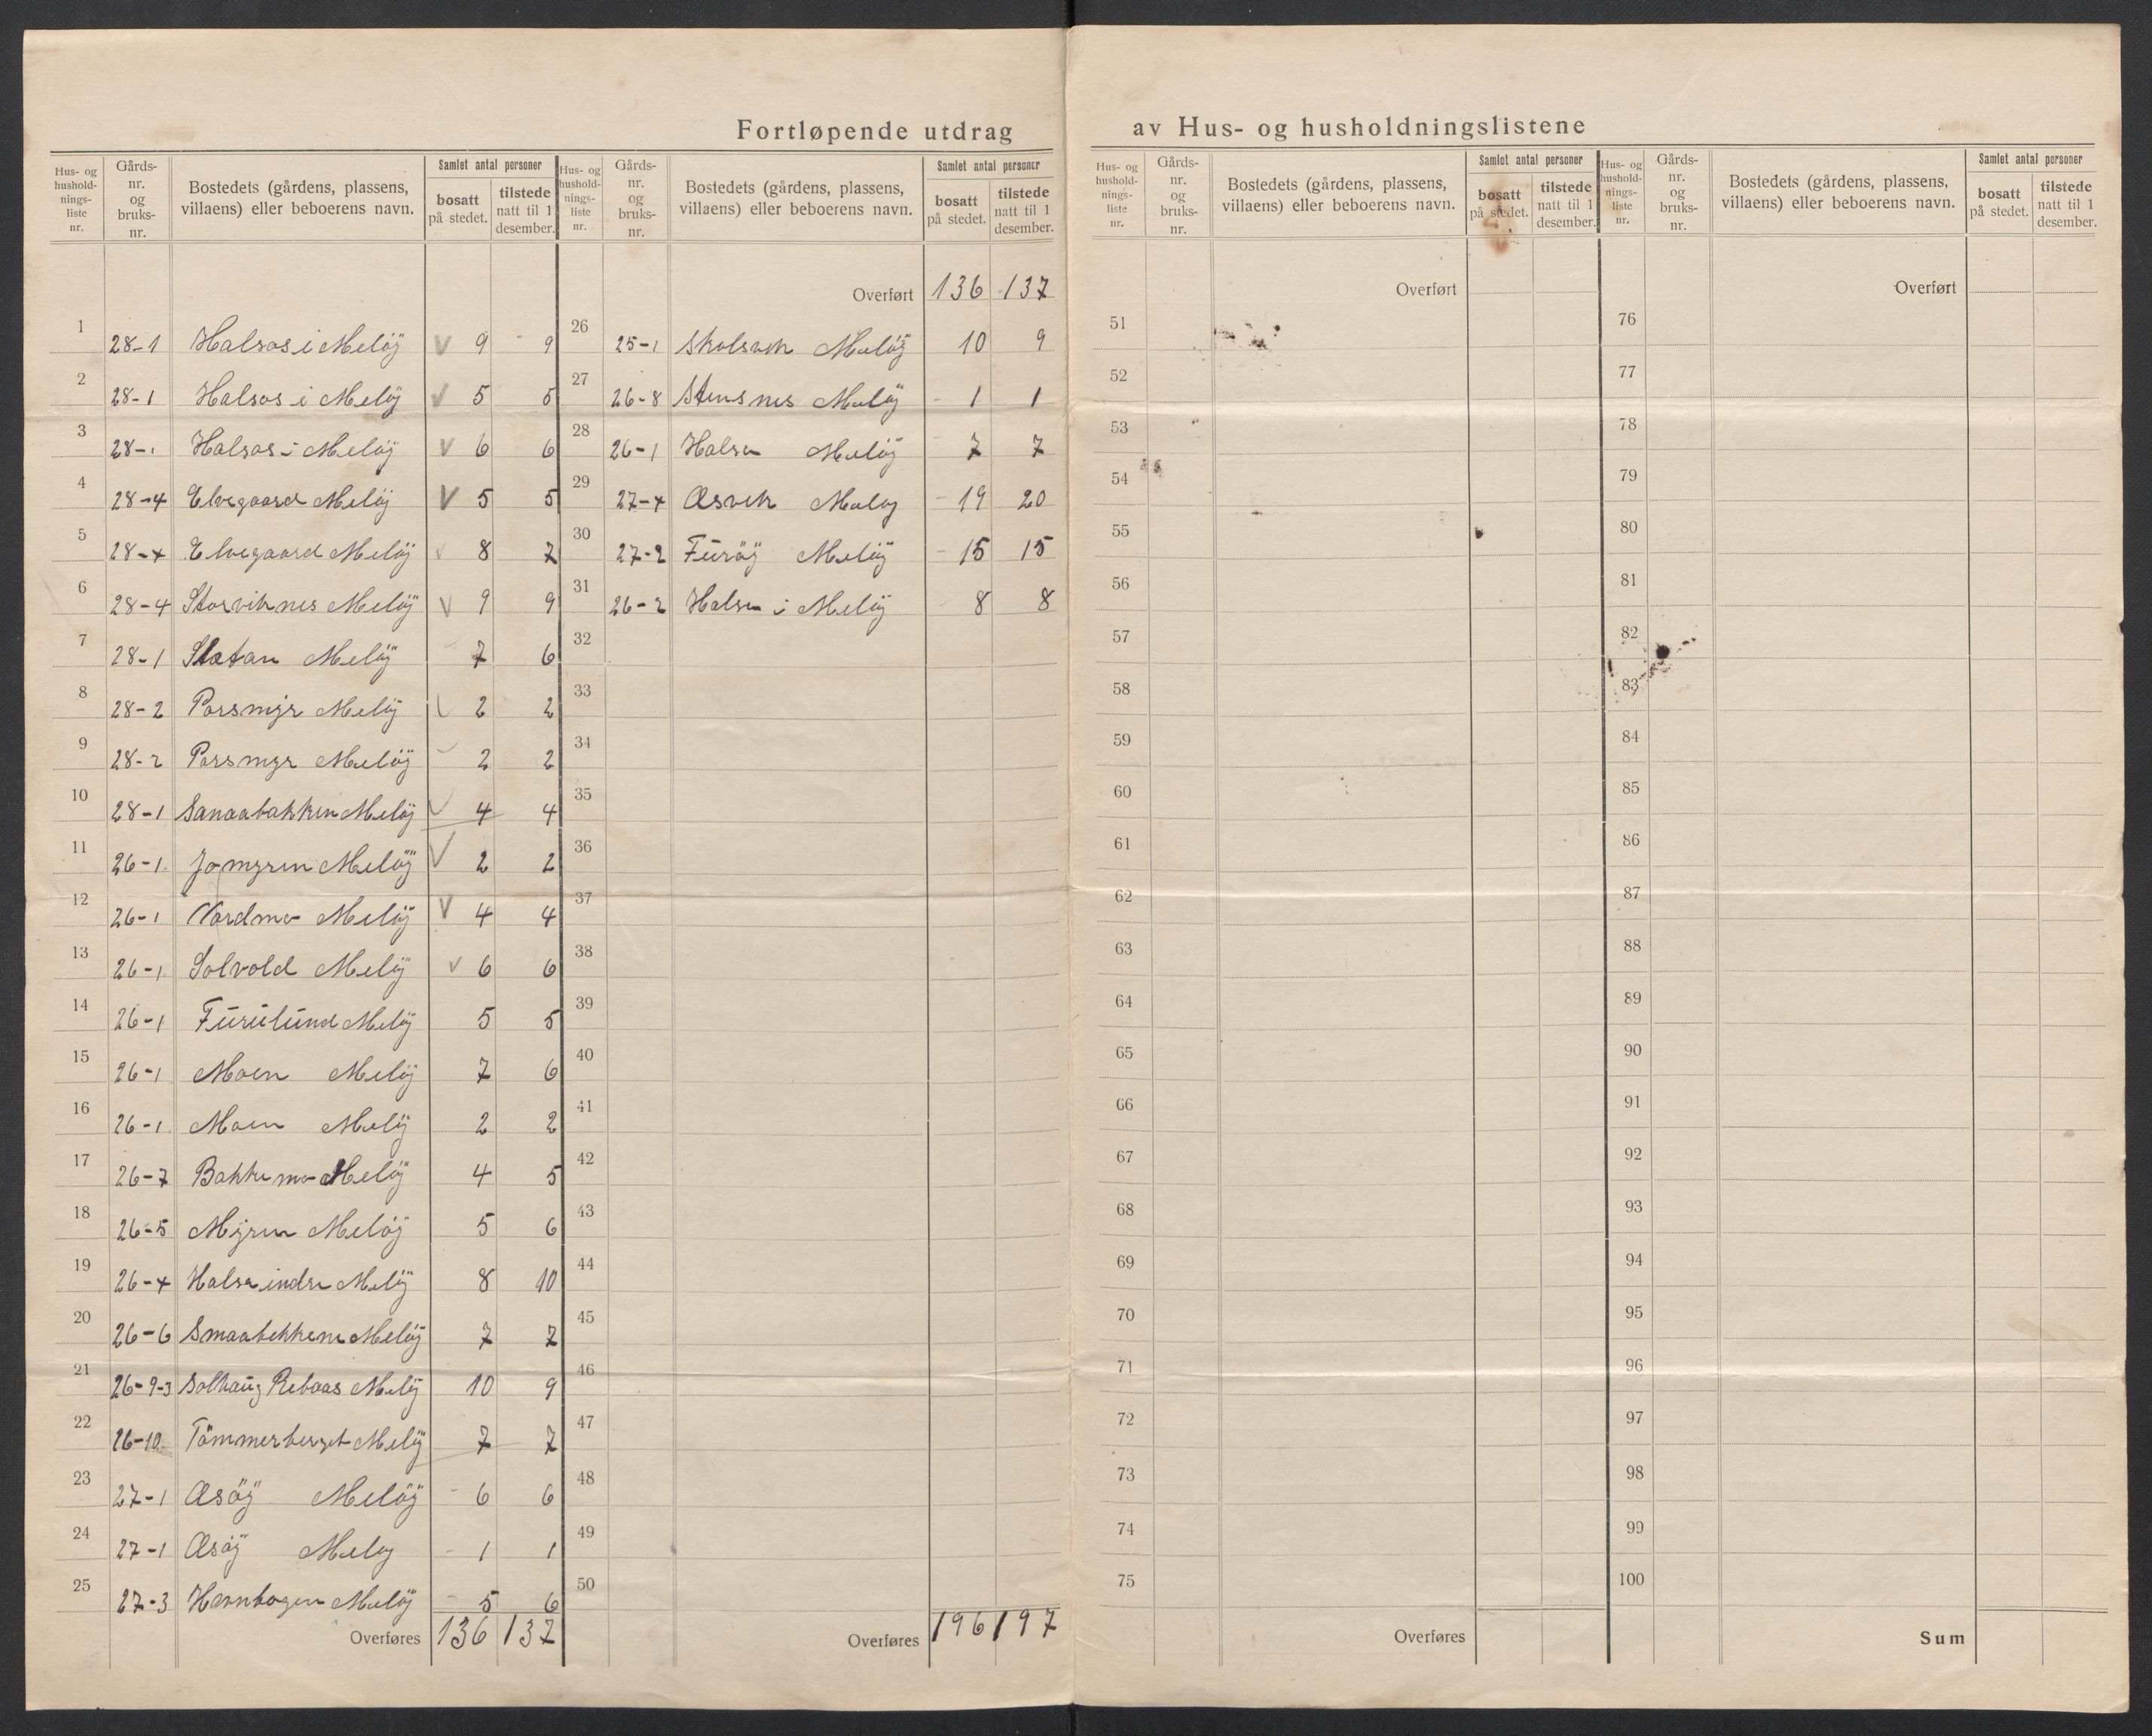 Fortløpende utdrag av Hus- og husholdningslistene
Hus- og husholdnings-liste nr. | Gårds-nr. og bruks-nr. | Bostedets (gårdens, plassens, villaens) eller beboerens navn. | Samlet antal personer | bosatt på stedet. | tilstede natt til 1 desember.
1 28-1 Halsos i Meløÿ V 9 9
2 28-1 Halsos i Meløÿ V 5 5
3 28-1 Halsos i Meløÿ V 6 6
4 28-4 Elvegaard Meløÿ V 5 5
5 28-4 Elvegaard Meløÿ V 8 7
6 28-4 Storviknes Meløÿ V 9 9
7 28-1 Sletan Meløÿ 7 6
8 28-2 Porsmyr Meløÿ 2 2
9 28-2 Porsmyr Meløÿ 2 2
10 28-1 Sanaabakken Meløÿ V 4 4
11 26-1 Jomyren Meløÿ V 2 2
12 26-1 Nordmo Meløÿ V 4 4
13 26-1 Solvold Meløÿ V 6 6
14 26-1 Furulund Meløÿ 5 5
15 26-1 Moen Meløÿ 7 6
16 26-1 Moen Meløÿ 2 2
17 26-7 Bakkemo Meløÿ 4 5
18 26-5 Myren Meløÿ 5 6
19 26-4 Halsa indre Meløÿ 8 10
20 26-6 Smaabekkene Meløÿ 7 7
21 26-9-3 Solhaug Rebaas Meløÿ 10 9
22 26-10 Tömmerberget Meløÿ 7 7
23 27-1 Æsöÿ Meløÿ 6 6
24 27-1 Æsöÿ Meløy 1 1
25 27-3 Havnbogen Meløÿ 5 6
Overføres 136 137
Hus- og husholdnings-liste nr. | Gårds-nr. og bruks-nr. | Bostedets (gårdens, plassens, villaens) eller beboerens navn. | Samlet antal personer | bosatt på stedet. | tilstede natt til 1 desember.
Overført 136 137
26 25-1 Skolsvik Meløÿ 10 9
27 26-8 Stensnes Meløÿ 1 1
28 26-1 Halsa Meløÿ 7 7
29 27-4 Æsvik Meløy 19 20
30 27-2 Furöÿ Meløÿ 15 15
31 26-2 Halsa i Meløÿ 8 8
32
33
34
35
36
37
38
39
40
41
42
43
44
45
46
47
48
49
50
Overføres 196 197
Hus- og husholdnings-liste nr. | Gårds-nr. og bruks-nr. | Bostedets (gårdens, plassens, villaens) eller beboerens navn. | Samlet antal personer | bosatt på stedet. | tilstede natt til 1 desember.
Overført
51
52
53
54
55
56
57
58
59
60
61
62
63
64
65
66
67
68
69
70
71
72
73
74
75
Overføres
Hus- og husholdnings-liste nr. | Gårds-nr. og bruks-nr. | Bostedets (gårdens, plassens, villaens) eller beboerens navn. | Samlet antal personer | bosatt på stedet. | tilstede natt til 1 desember.
Overført
76
77
78
79
80
81
82
83
84
85
86
87
88
89
90
91
92
93
94
95
96
97
98
99
100
Sum